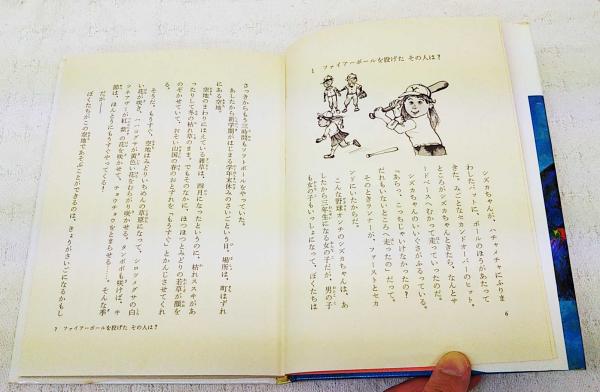 1 ファイアーボールを投げた その人は?
シズカちゃんが、ハチャメチャにふりま
わしたバットに、ボールのほうがあたって
きた。みごとなセカンドオーバーのヒット。
ところがシズカちゃんときたら、なんとサ
ードベースへむかって走っていったのだ。
シズカちゃんのいいぐさがふるっている。
「あらっ、こっちじゃいけなかったの?
だれもいないところへ走ったのよ」だって。
そのときランナーが、ファーストとセカ
ンドにいたからだ。
こんな野球オンチのシズカちゃんは、あ
したから三年生になる女の子だが、男の子
も女の子もいっしょになって、ぼくたちは
6
さっきからもう三時間もソフトボールをやっていた。
あしたから新学期がはじまる学年末休みのさいごという日。場所は、町はずれ
にある空地。
空地のまわりにはえている雑草は、四月になったというのに、枯れススキがあ
ったりして冬の枯れ草のまま。でもそのなかに、ほつほつとみどりの若草が顔を
のぞかせていて、おそい山国の春のおとずれを「もうすぐ」とかんじさせてくれ
る。
そうだ、もうすぐ、空地はみどりいちめんの草原になって、シロツメグサの白
い花が咲き、ハハコグサが黄色い花をむらがり咲かせる。タンポポも咲けば、キ
ツネアザミが紅紫の花を咲かせて、チョウチョウをとまらせる……。そんな季
節は、ほんとうにもうすぐやってくるのだ。
だが――
ぼくたちがこの空地であそぶことができるのは、きょうがさいごになるかもし
7 ファイアーボールを投げた その人は?